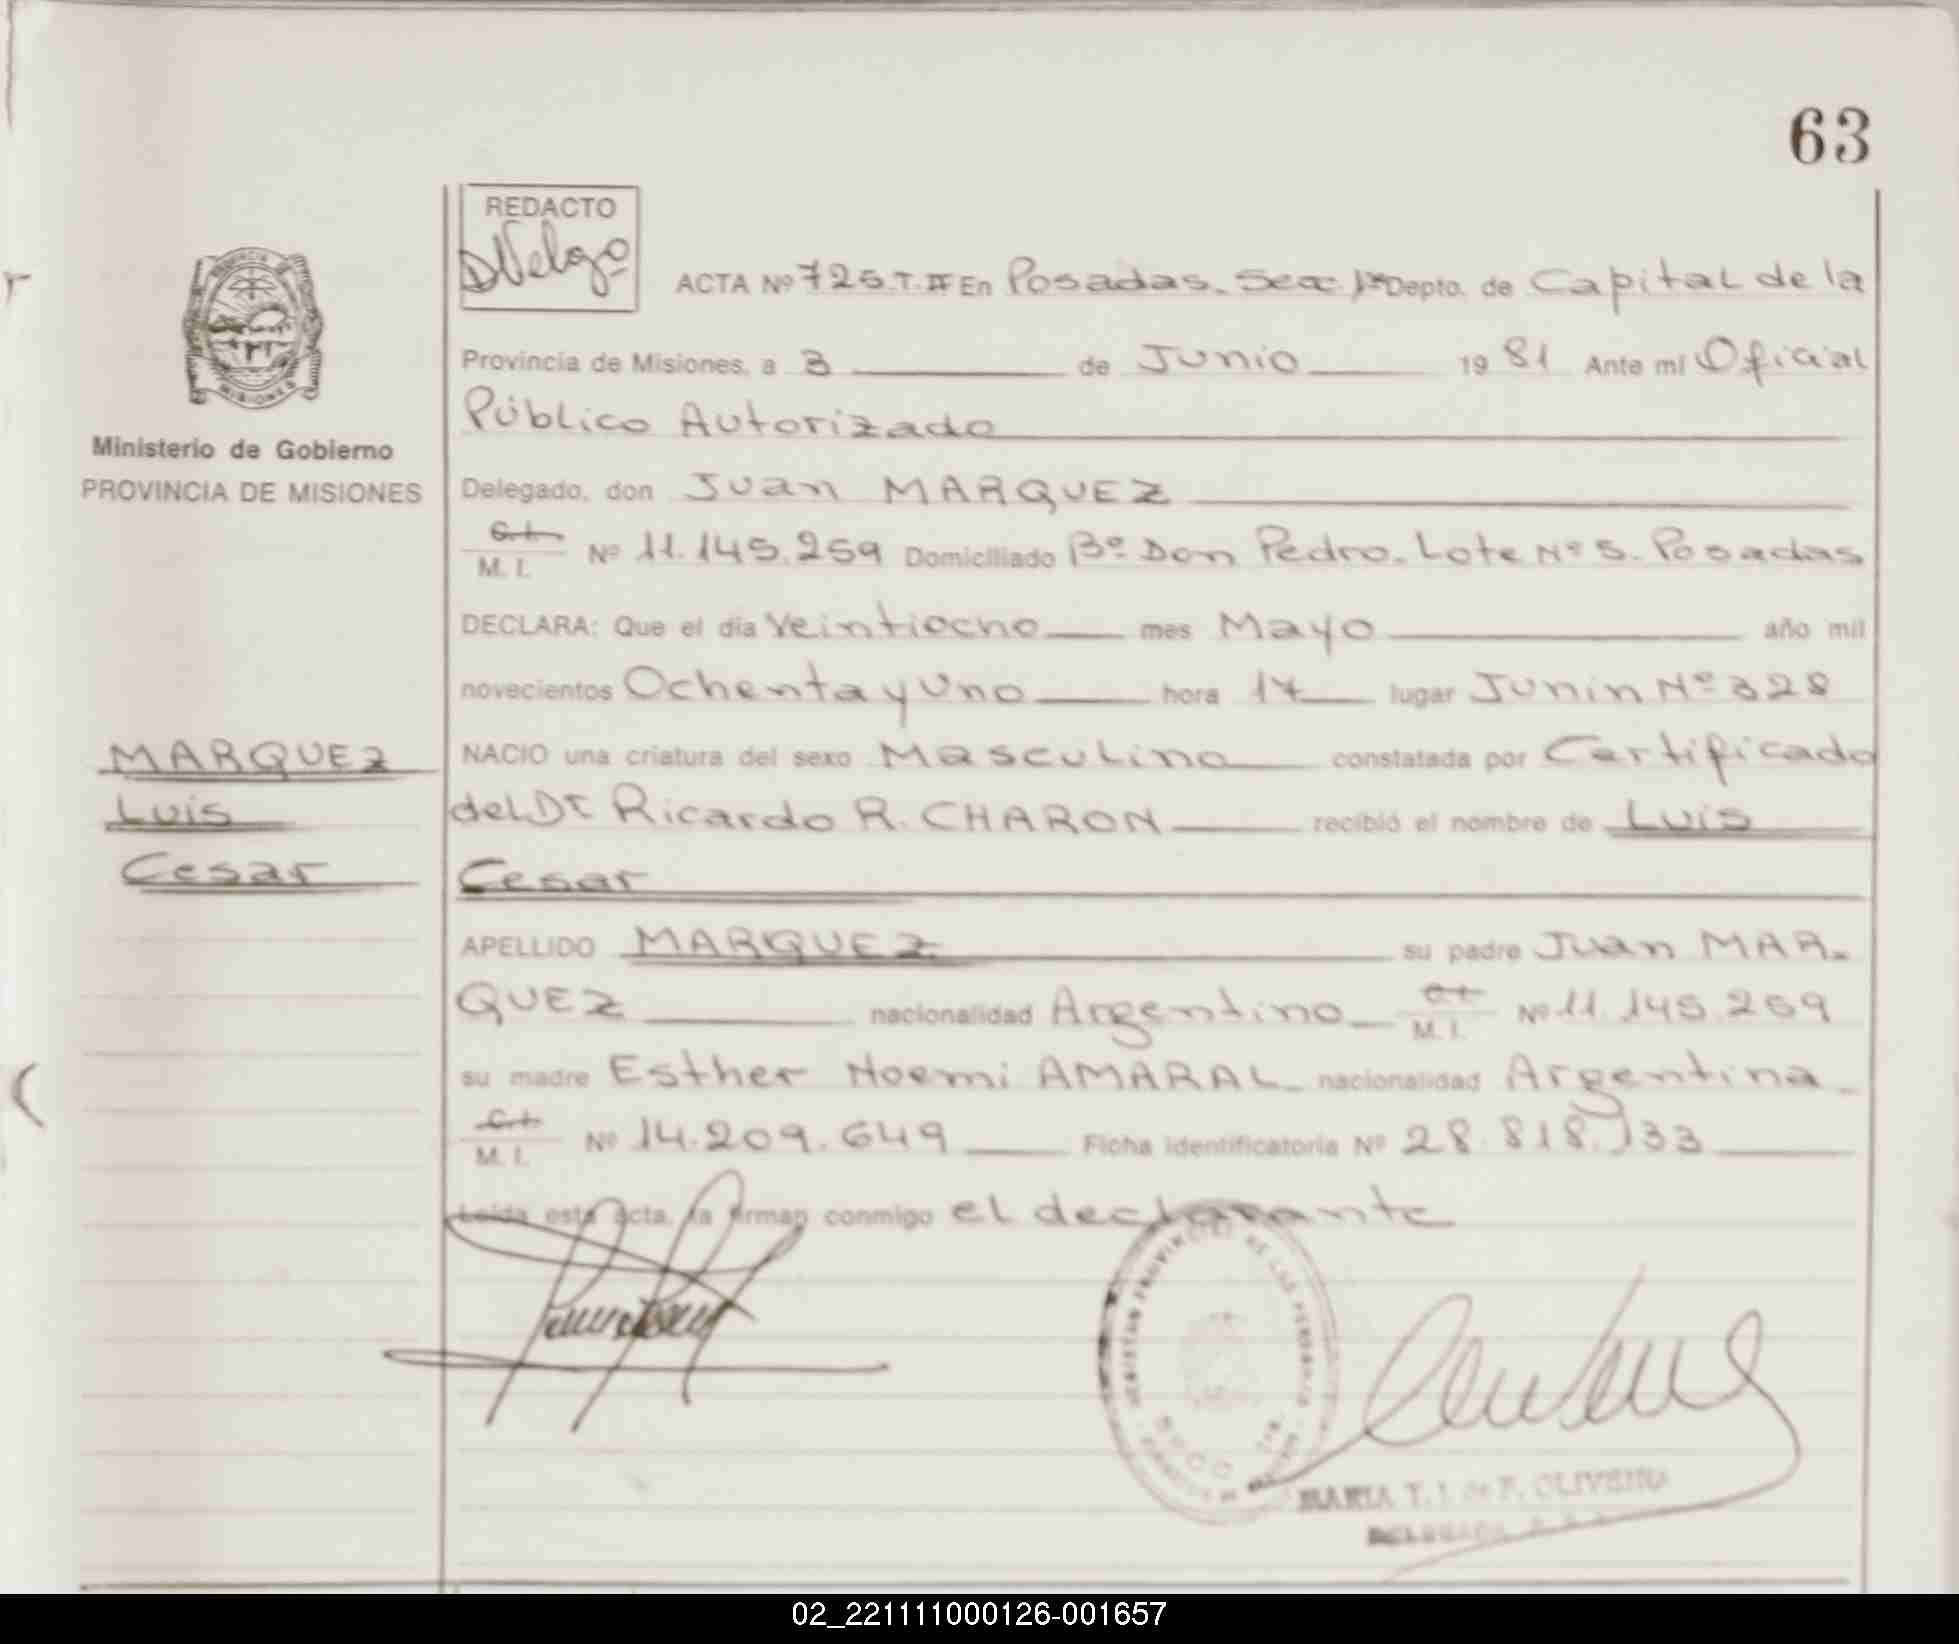 63
REDACTO
ACTA Nº 725. T. II En Posadas. Secc 1ª Depto. de Capital de la
Provincia de Misiones, a 3 de Junio 1981 Ante mí Oficial
Público Autorizado
Ministerio de Gobierno
PROVINCIA DE MISIONES
Delegado, don Juan MARQUEZ
C.I. M. I. Nº 11.145.259 Domiciliado Bº Don Pedro. Lote Nº 5. Posadas
DECLARA: Que el día Veintiocho mes Mayo año mil
novecientos Ochenta y Uno hora 17 lugar Junin Nº 328
MARQUEZ
Luis
Cesar
NACIO una criatura del sexo Masculino constatada por Certificado
del Dr Ricardo R. CHARON recibió el nombre de Luis
Cesar
APELLIDO MARQUEZ su padre Juan MAR-
QUEZ nacionalidad Argentino C.I. M. I. Nº 11.145.259
su madre Esther Noemi AMARAL nacionalidad Argentina
C.I. M. I. Nº 14.209.649 Ficha identificatoria Nº 28.818.933
Leída esta acta, la firman conmigo el declarante
MARIA T. I. de F. OLIVEIRA
02_221111000126-001657